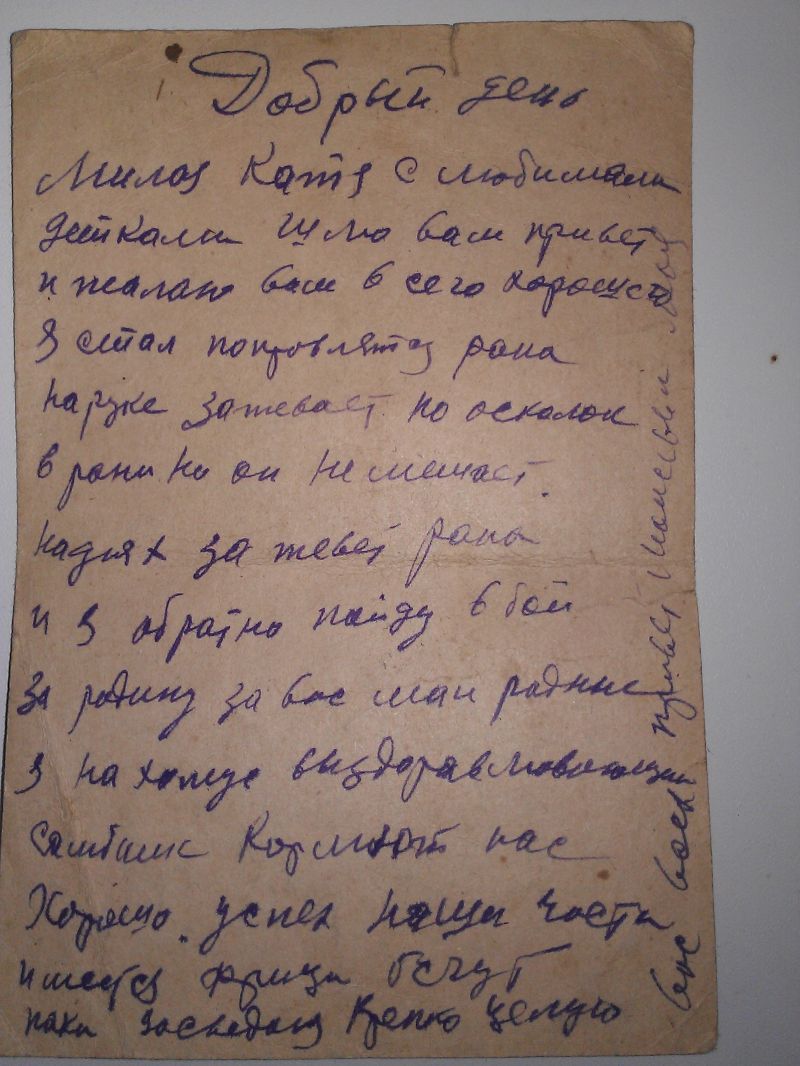 Добрый день
Милоя Катя с любимами
детками Шлю вам привет
и жалаю вам всего хорошего
Я стал поправлятся рана
на руке зажевает но осколок
в рани но он не мешает.
на днях за жевет рана
и я обратно пайду в бой
За родину за вас маи родные
я на хожус выздоравлювающим
Кормют нас
Хорошо. успех наши части
имеетя фрицы бегут
пака досведаня Крепко целую
вас всех привет